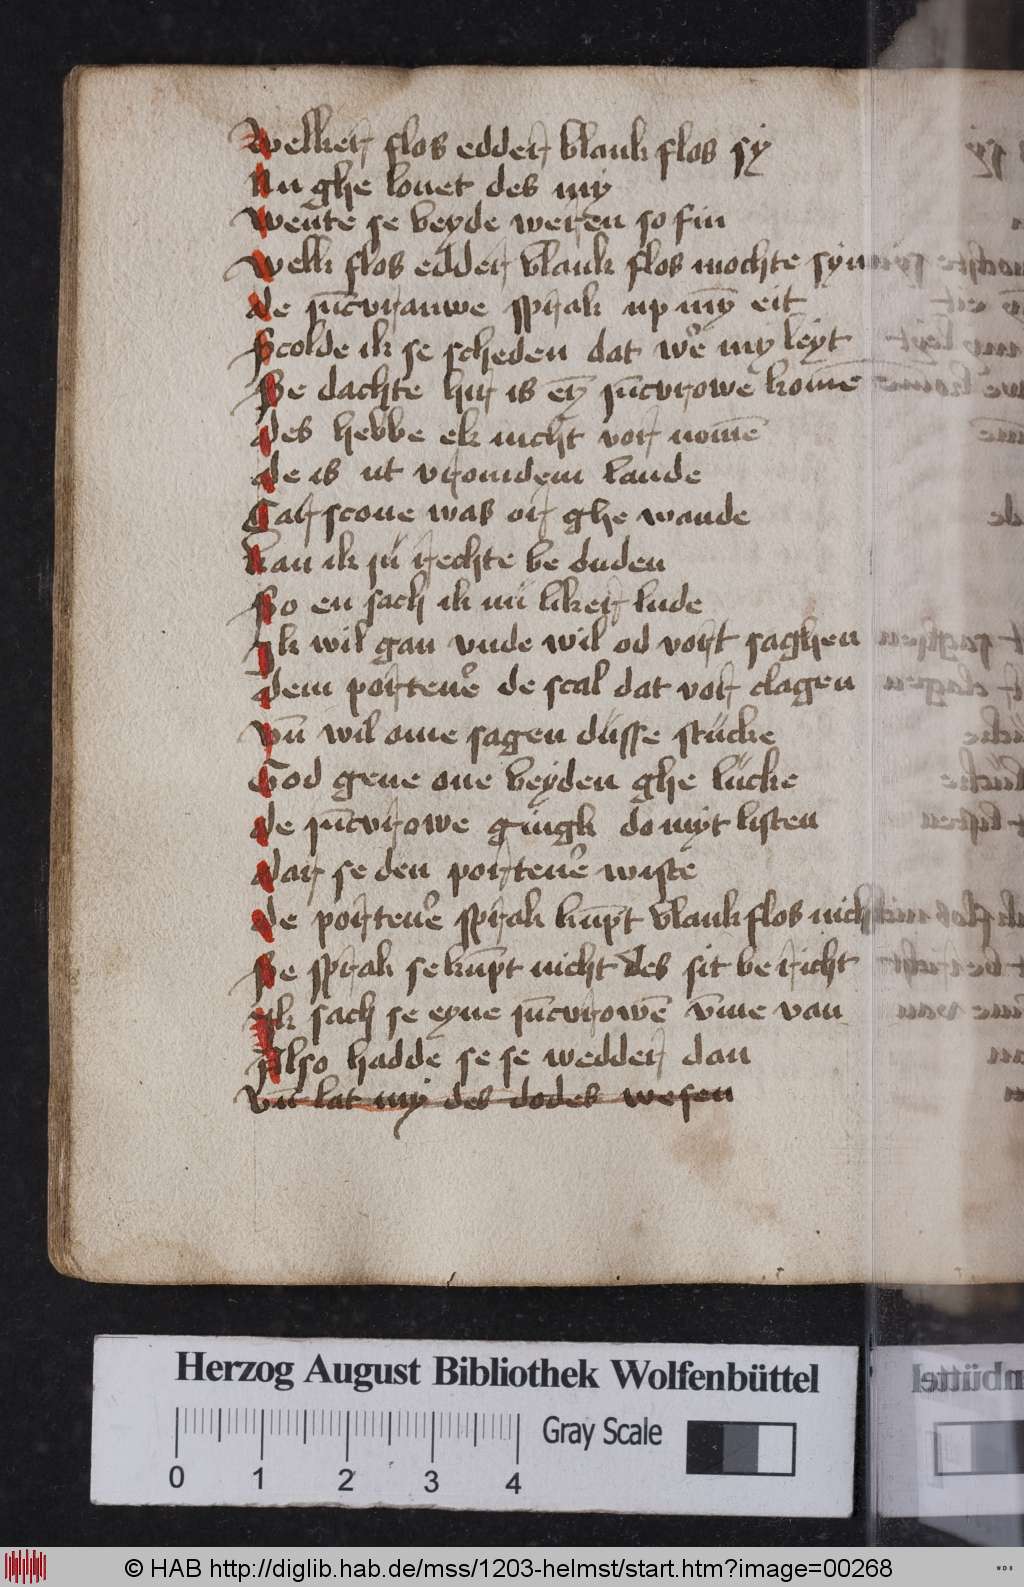 Welker flos edder blank flos sy
Nu ghe louet des my
Wente se beyde weren so fin
Welk flos edder blank flos mochte syn
de jūcvrauwe sprak up myn̄ eit
Scolde ik se scheden dat wer my leyt
Se dachte hir is eȳ jūcvrowe komē
des hebbe ek nicht vor nomē
de is ut vromdem lande
Gar scone was or ghe wande
kan ik ju rechte be duden
So en sach ik nü liker lude
Ik wil gan vnde wil od vort saghen
dem portener de scal dat vor clagen
Vn̄ wil ome sagen düsse stücke
God geue one beyden ghe lücke
de jūcvrowe gingk do myt listen
dar se den portener wiste
de portener sprak kūpt blankflos nicht
Se sprak se kūpt nicht des sit be richt
Ik sach se eyne jūcvrowē vm̄e van
Also hadde se se wedder dan
Vn̄ lat my des dodes wesen
Herzog August Bibliothek Wolfenbüttel
Gray Scale
0 1 2 3 4
© HAB http://diglib.hab.de/mss/1203-helmst/start.htm?image=00268